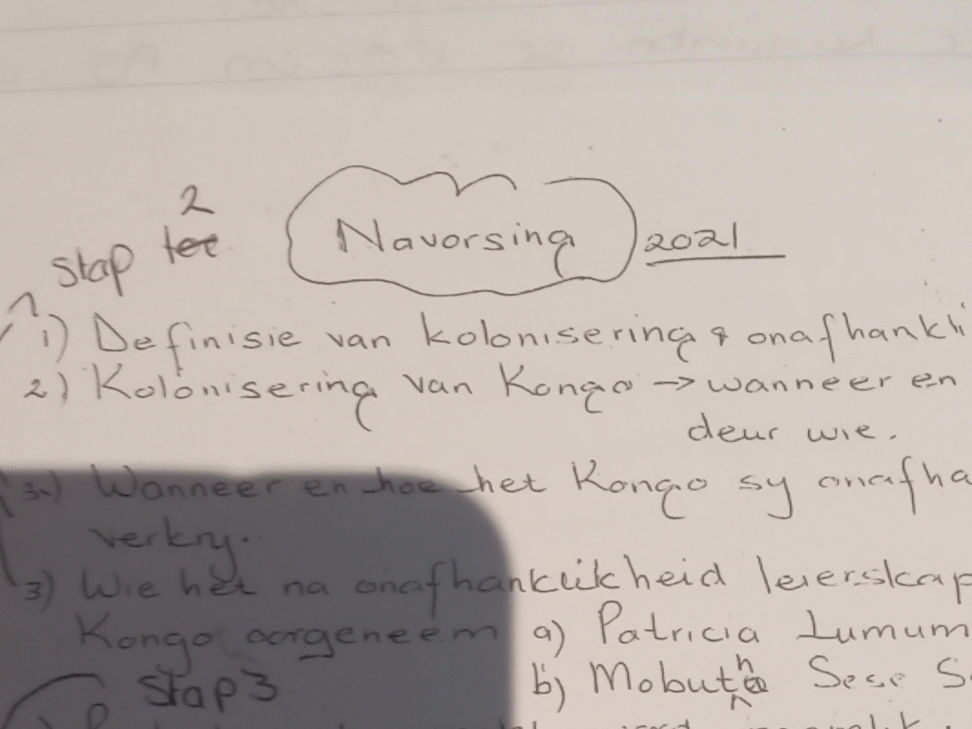 2
stap
Navorsing 2021
1) Definisie van kolonisering & onafhankli
2) Kolonisering van Kongo → wanneer en
deur wie.
3a) Wanneer en hoe het Kongo sy onafha
verkry.
3) Wie het na onafhanklikheid leierskap
Kongo oorgeneem a) Patricia Lumum
b) Mobutho Sese S
stap 3